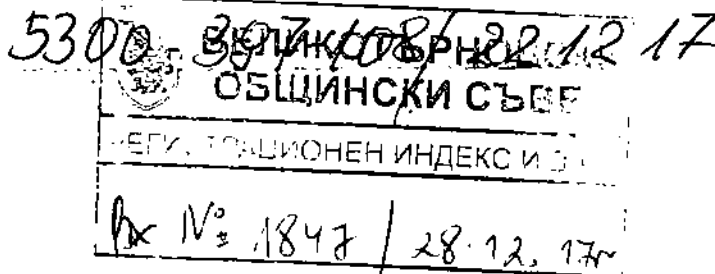 5300-397/08/22.12.17
ВЕЛИКОТЪРНО
ОБЩИНСКИ СЪВЕ
РЕГИСТРАЦИОНЕН ИНДЕКС И
Вх № 1847 / 28.12.17г